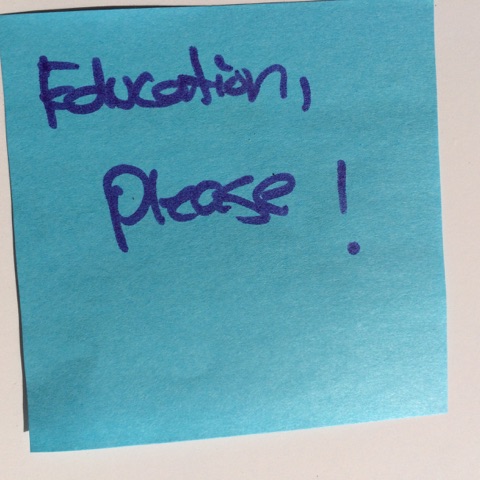 Education,
please!